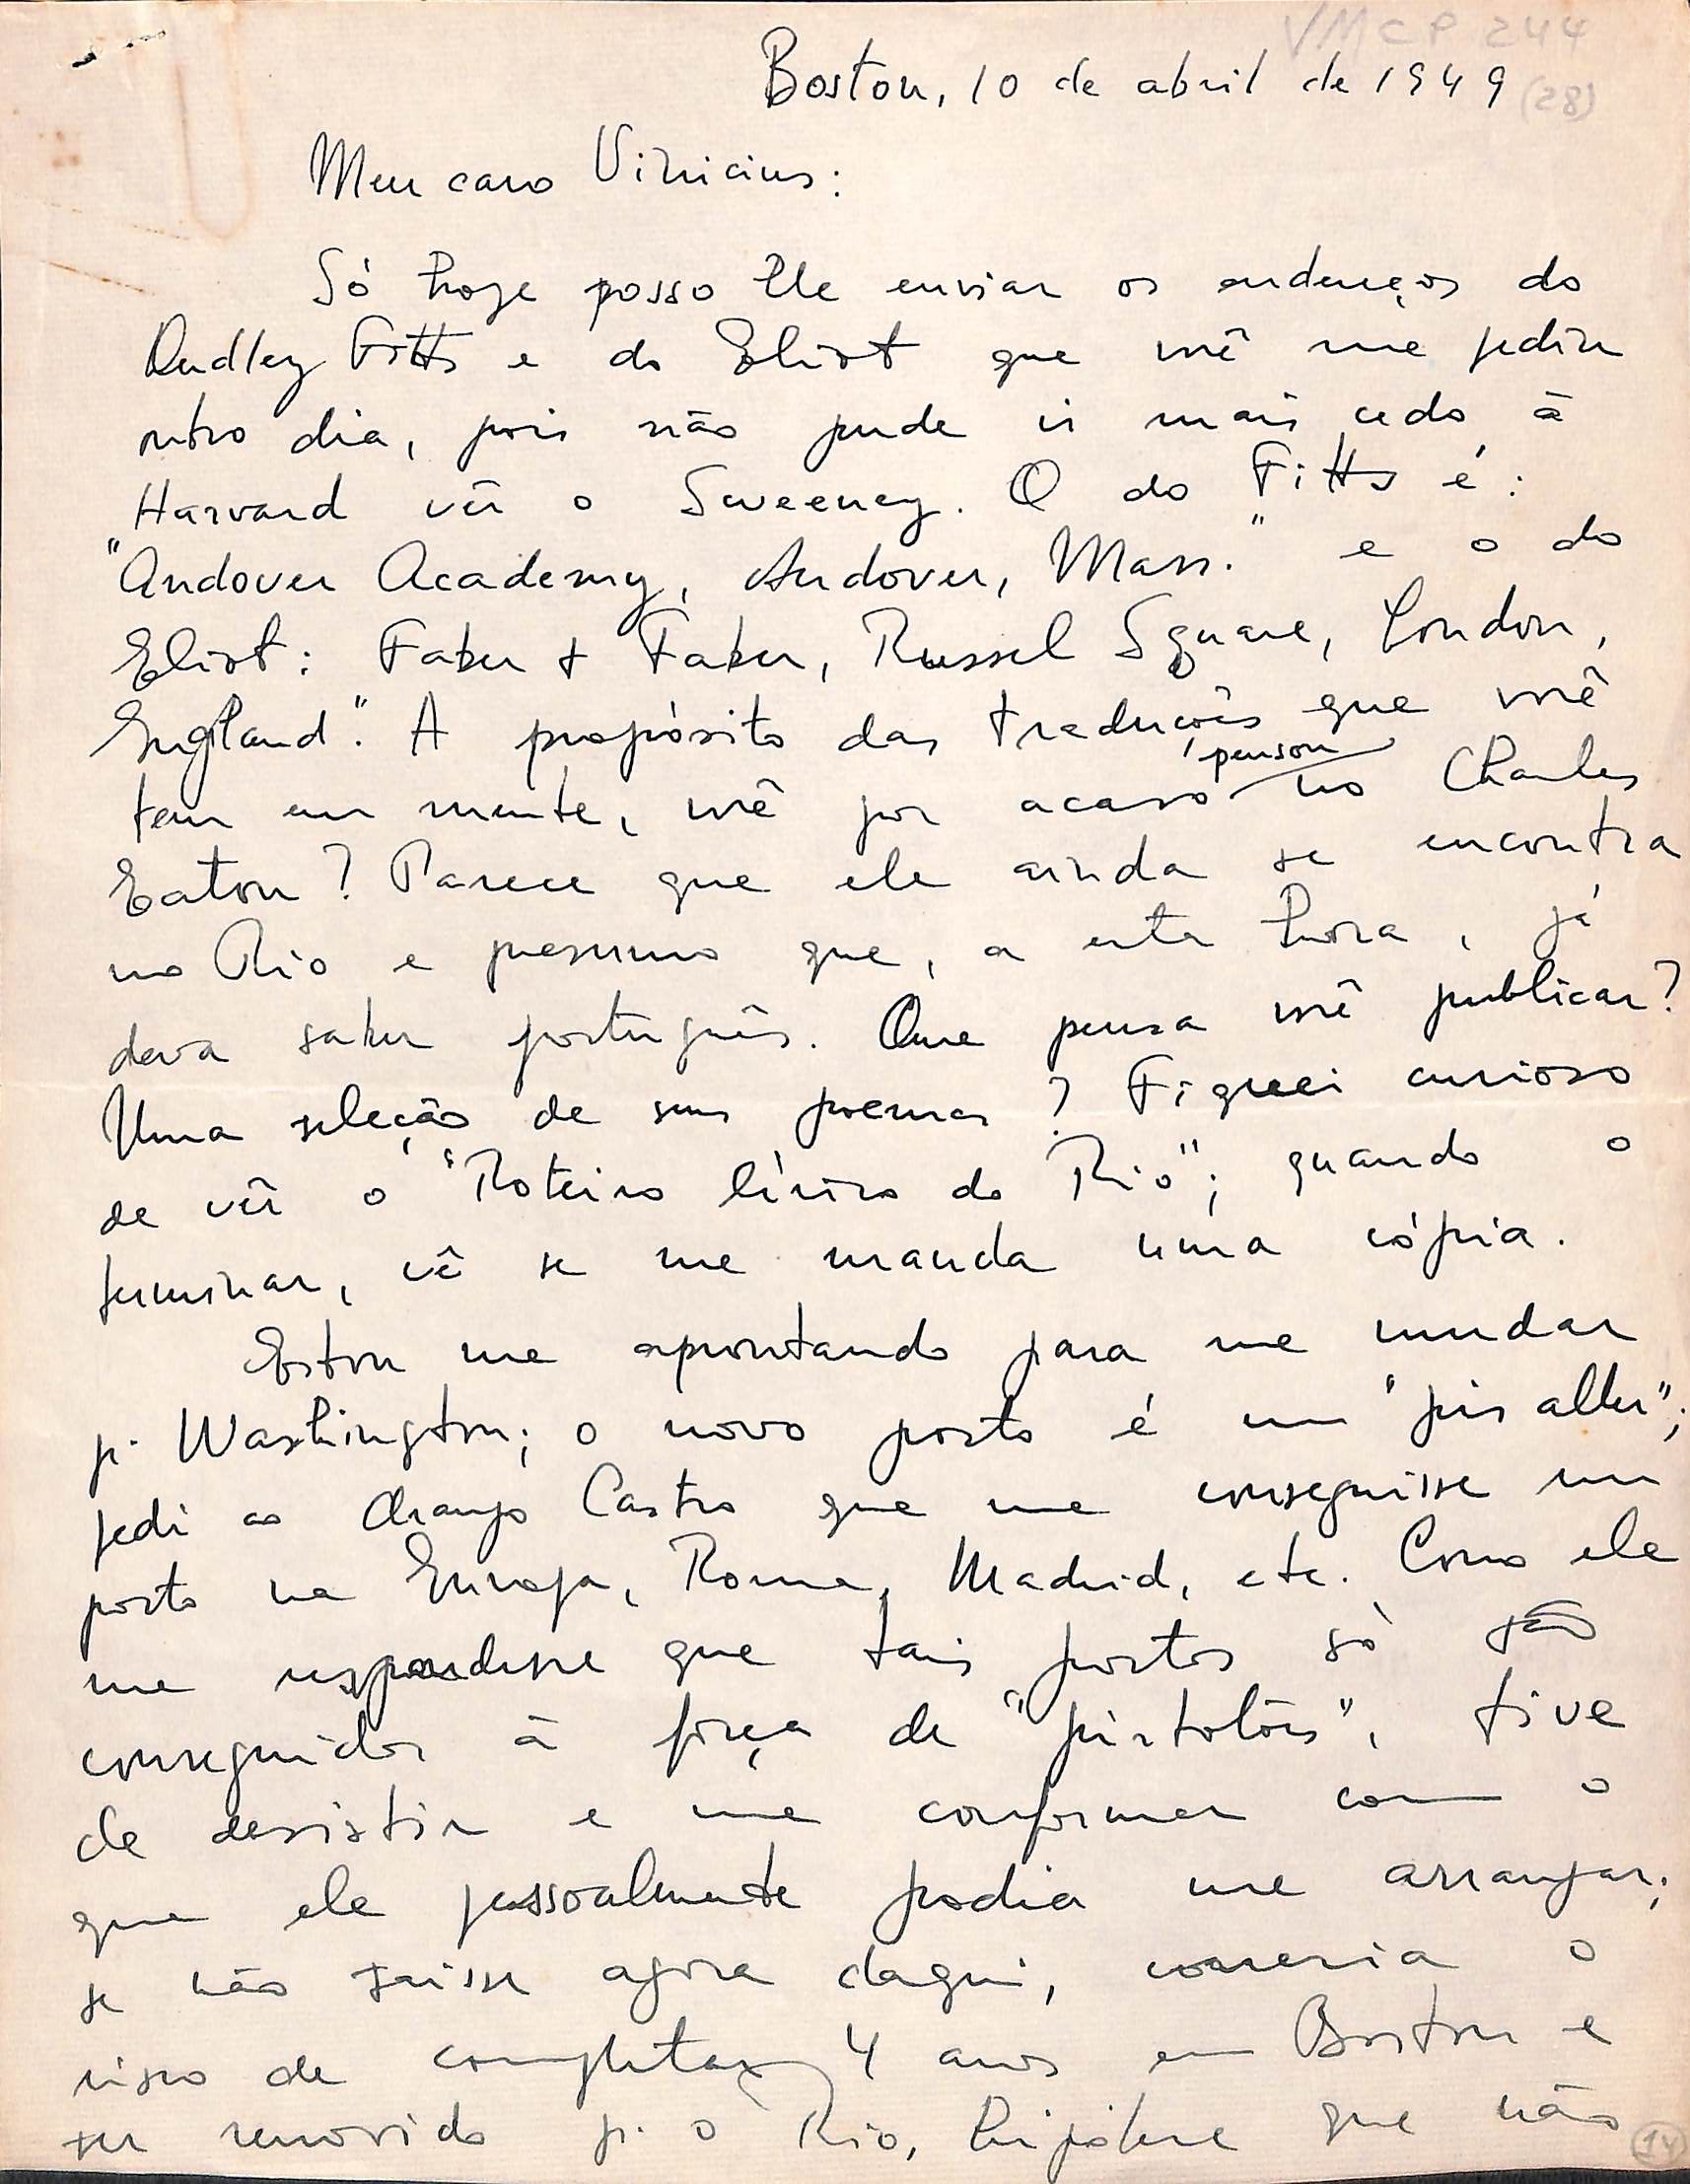 VMCP 244
Boston, 10 de abril de 1949 (28)
Meu caro Vinicius:
Só hoje posso lhe enviar os endereços do
Dudley Fitts e do Eliot que você me pediu
outro dia, pois não pude ir mais cedo à
Harvard vêr o Sweeney. O do Fitts é:
"Andover Academy, Andover, Mass." e o do
Eliot: Faber + Faber, Russel Square, London,
England". A propósito das traduções que você
tem em mente, você por acaso pensou no Charles
Eaton? Parece que ele ainda se encontra
no Rio e presumo que, a esta hora, já
deva saber português. Que pensa você publicar?
Uma seleção de seus poemas? Fiquei curioso
de vêr o "Roteiro lírico do Rio"; quando o
terminar, vê se me manda uma cópia.
Estou me aprontando para me mudar
p. Washington; o novo posto é um "pis aller";
pedi ao Araujo Castro que me conseguisse um
posto na Europa, Roma, Madrid, etc. Como ele
me respondesse que tais postos só são
conseguidos à força de "pistolões", tive
de desistir e me conformar com o
que ele pessoalmente podia me arranjar;
se não saisse agora daqui, correria o
risco de completar 4 anos em Boston e
ser removido p. o Rio, hipótese que não
14